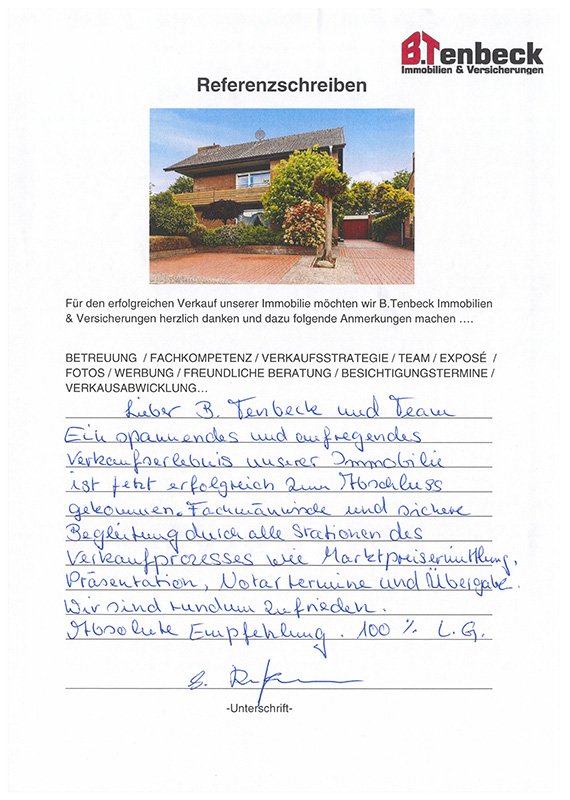 B.Tenbeck
Immobilien & Versicherungen
Referenzschreiben
Für den erfolgreichen Verkauf unserer Immobilie möchten wir B.Tenbeck Immobilien
& Versicherungen herzlich danken und dazu folgende Anmerkungen machen ….
BETREUUNG / FACHKOMPETENZ / VERKAUFSSTRATEGIE / TEAM / EXPOSÉ /
FOTOS / WERBUNG / FREUNDLICHE BERATUNG / BESICHTIGUNGSTERMINE /
VERKAUSABWICKLUNG…
Lieber B. Tenbeck und Team
Ein spannendes und aufregendes
Verkaufserlebnis unserer Immobilie
ist jetzt erfolgreich zum Abschluss
gekommen. Fachmännische und sichere
Begleitung durch alle Stationen des
Verkaufprozesses wie Marktpreisermittlung,
Präsentation, Notartermine und Übergabe.
Wir sind rundum zufrieden.
Absolute Empfehlung. 100 % L.G.
-Unterschrift-